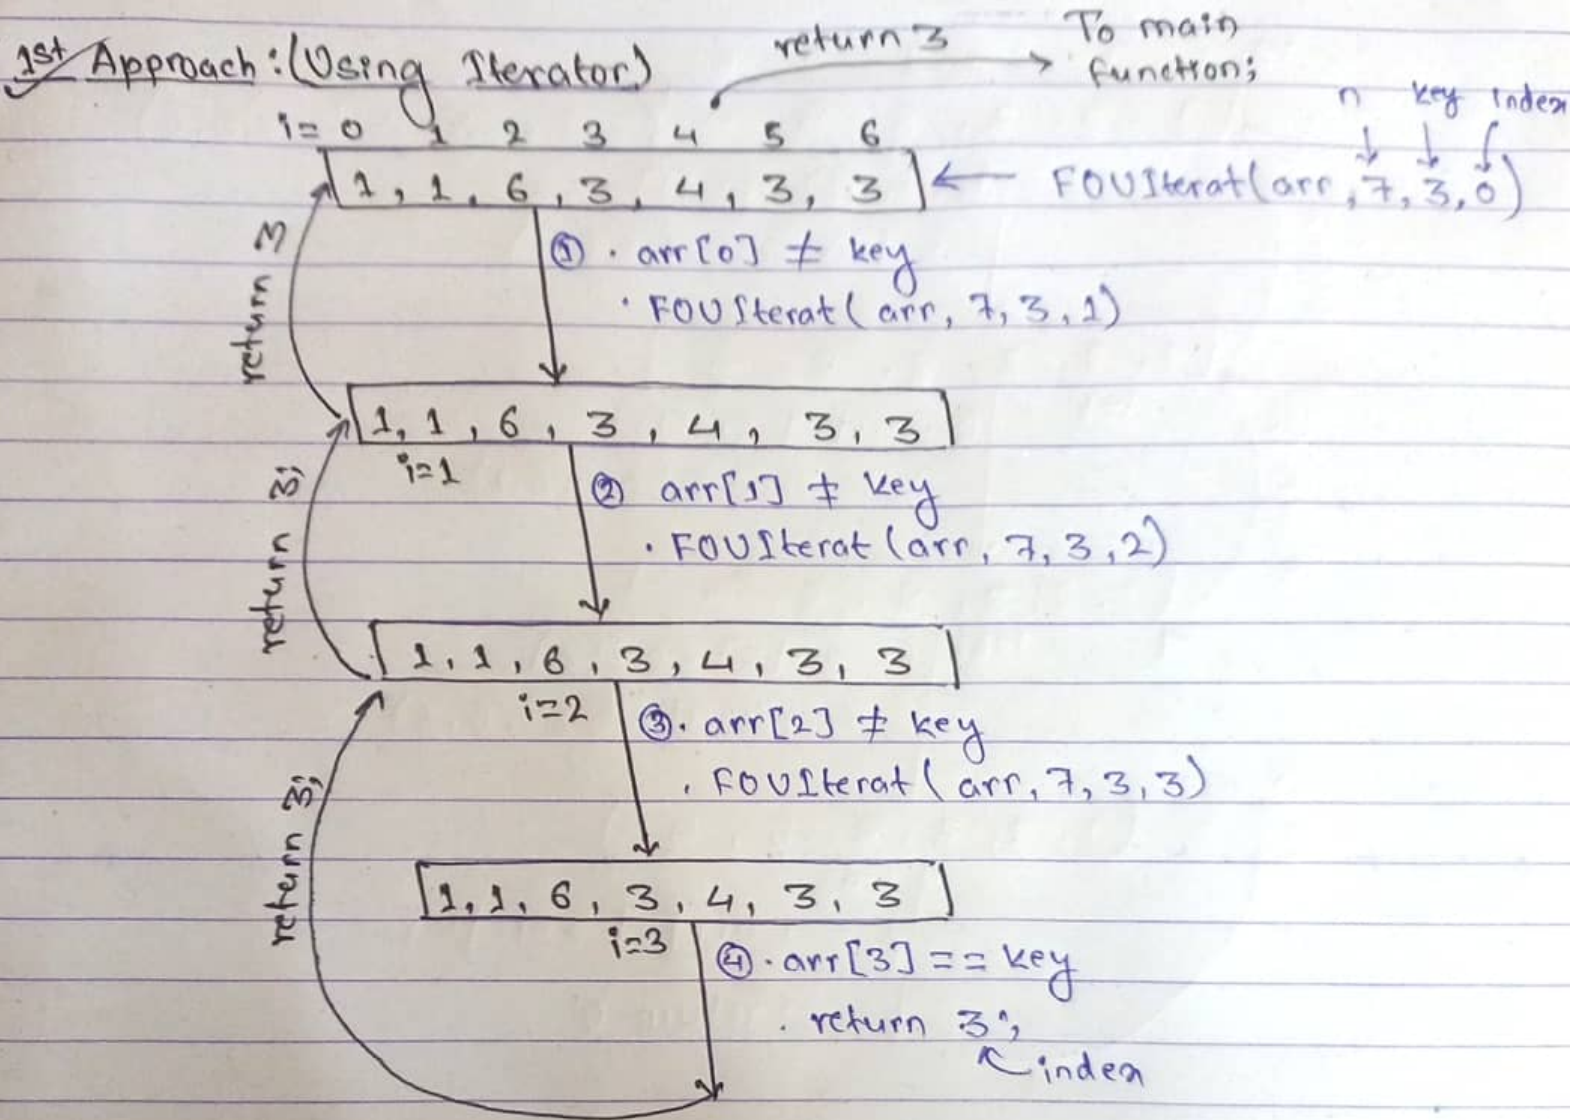 1st Approach:(Using Iterator)
return 3
To main
function;
n key index
i= 0 1 2 3 4 5 6
1, 1, 6, 3, 4, 3, 3
FOUIterat(arr, 7, 3, 0)
return 3
① . arr[0] ≠ key
. FOUIterat(arr, 7, 3, 1)
1, 1, 6, 3, 4, 3, 3
i=1
return 3;
② arr[1] ≠ key
. FOUIterat(arr, 7, 3, 2)
1, 1, 6, 3, 4, 3, 3
i=2
return 3;
③. arr[2] ≠ key
. FOUIterat(arr, 7, 3, 3)
1, 1, 6, 3, 4, 3, 3
i=3
④. arr[3] == key
. return 3;
index